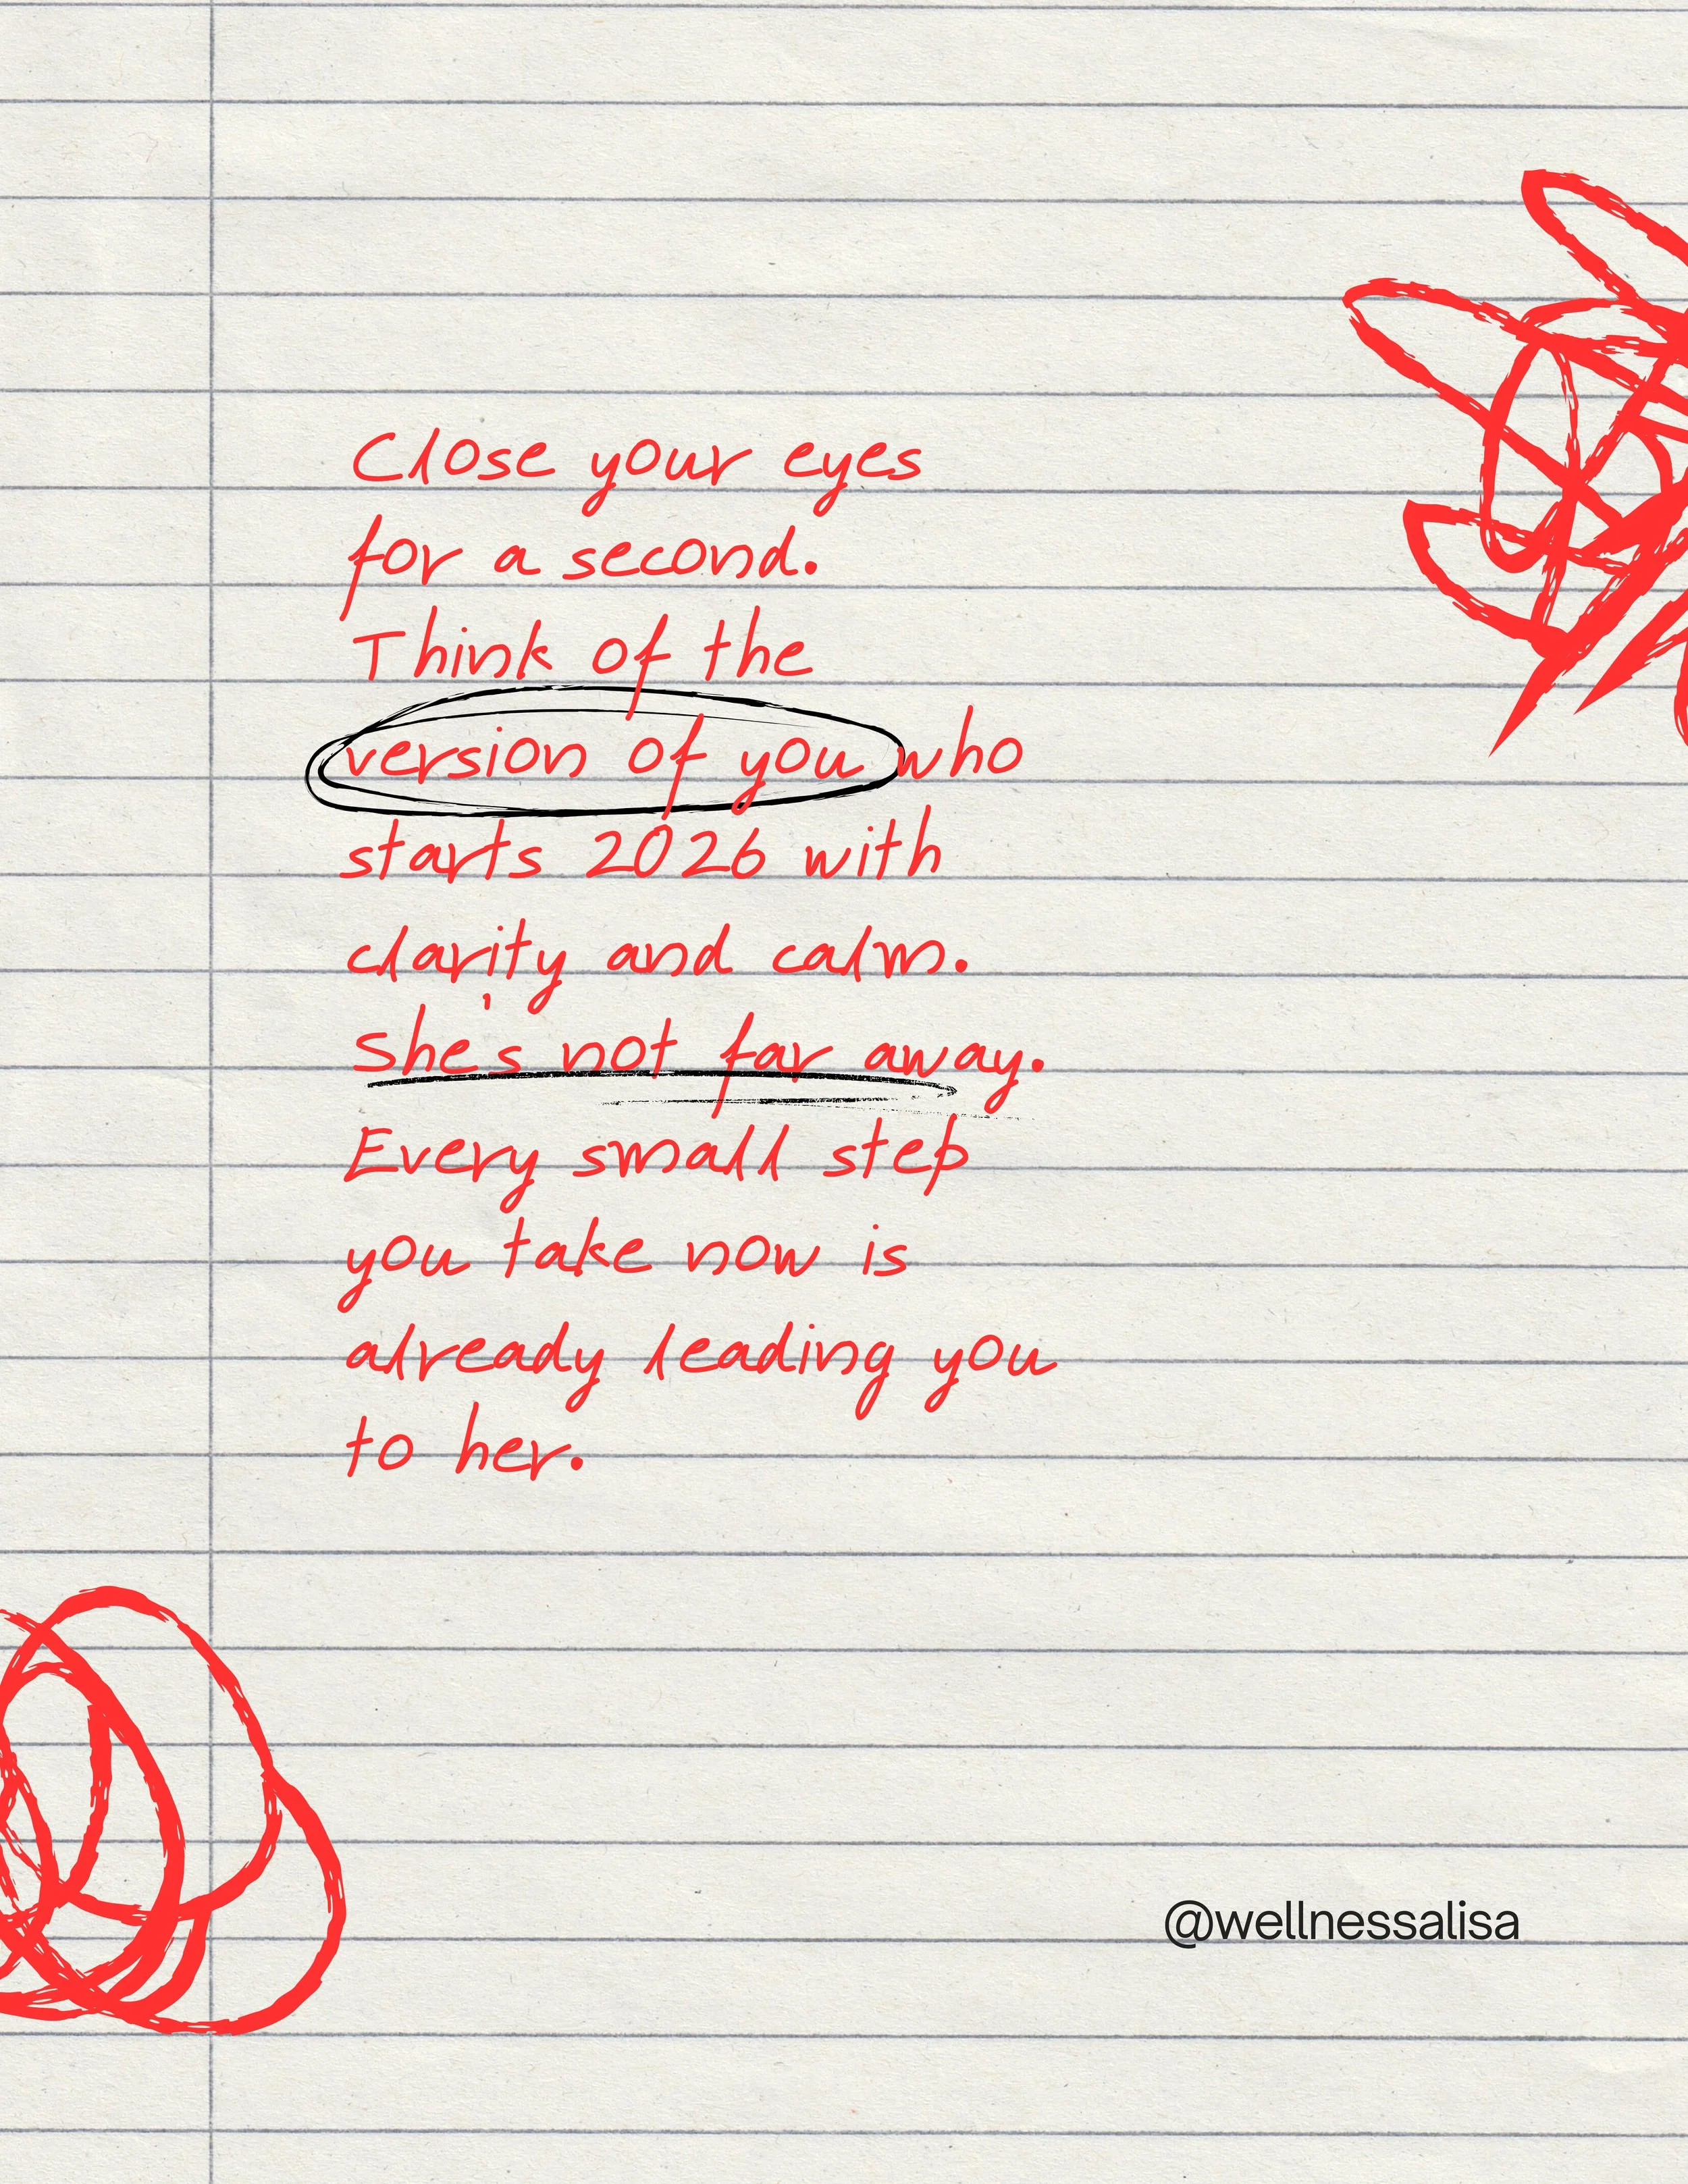 Close your eyes
for a second.
Think of the
version of you who
starts 2026 with
clarity and calm.
She's not far away.
Every small step
you take now is
already leading you
to her.
@wellnessalisa